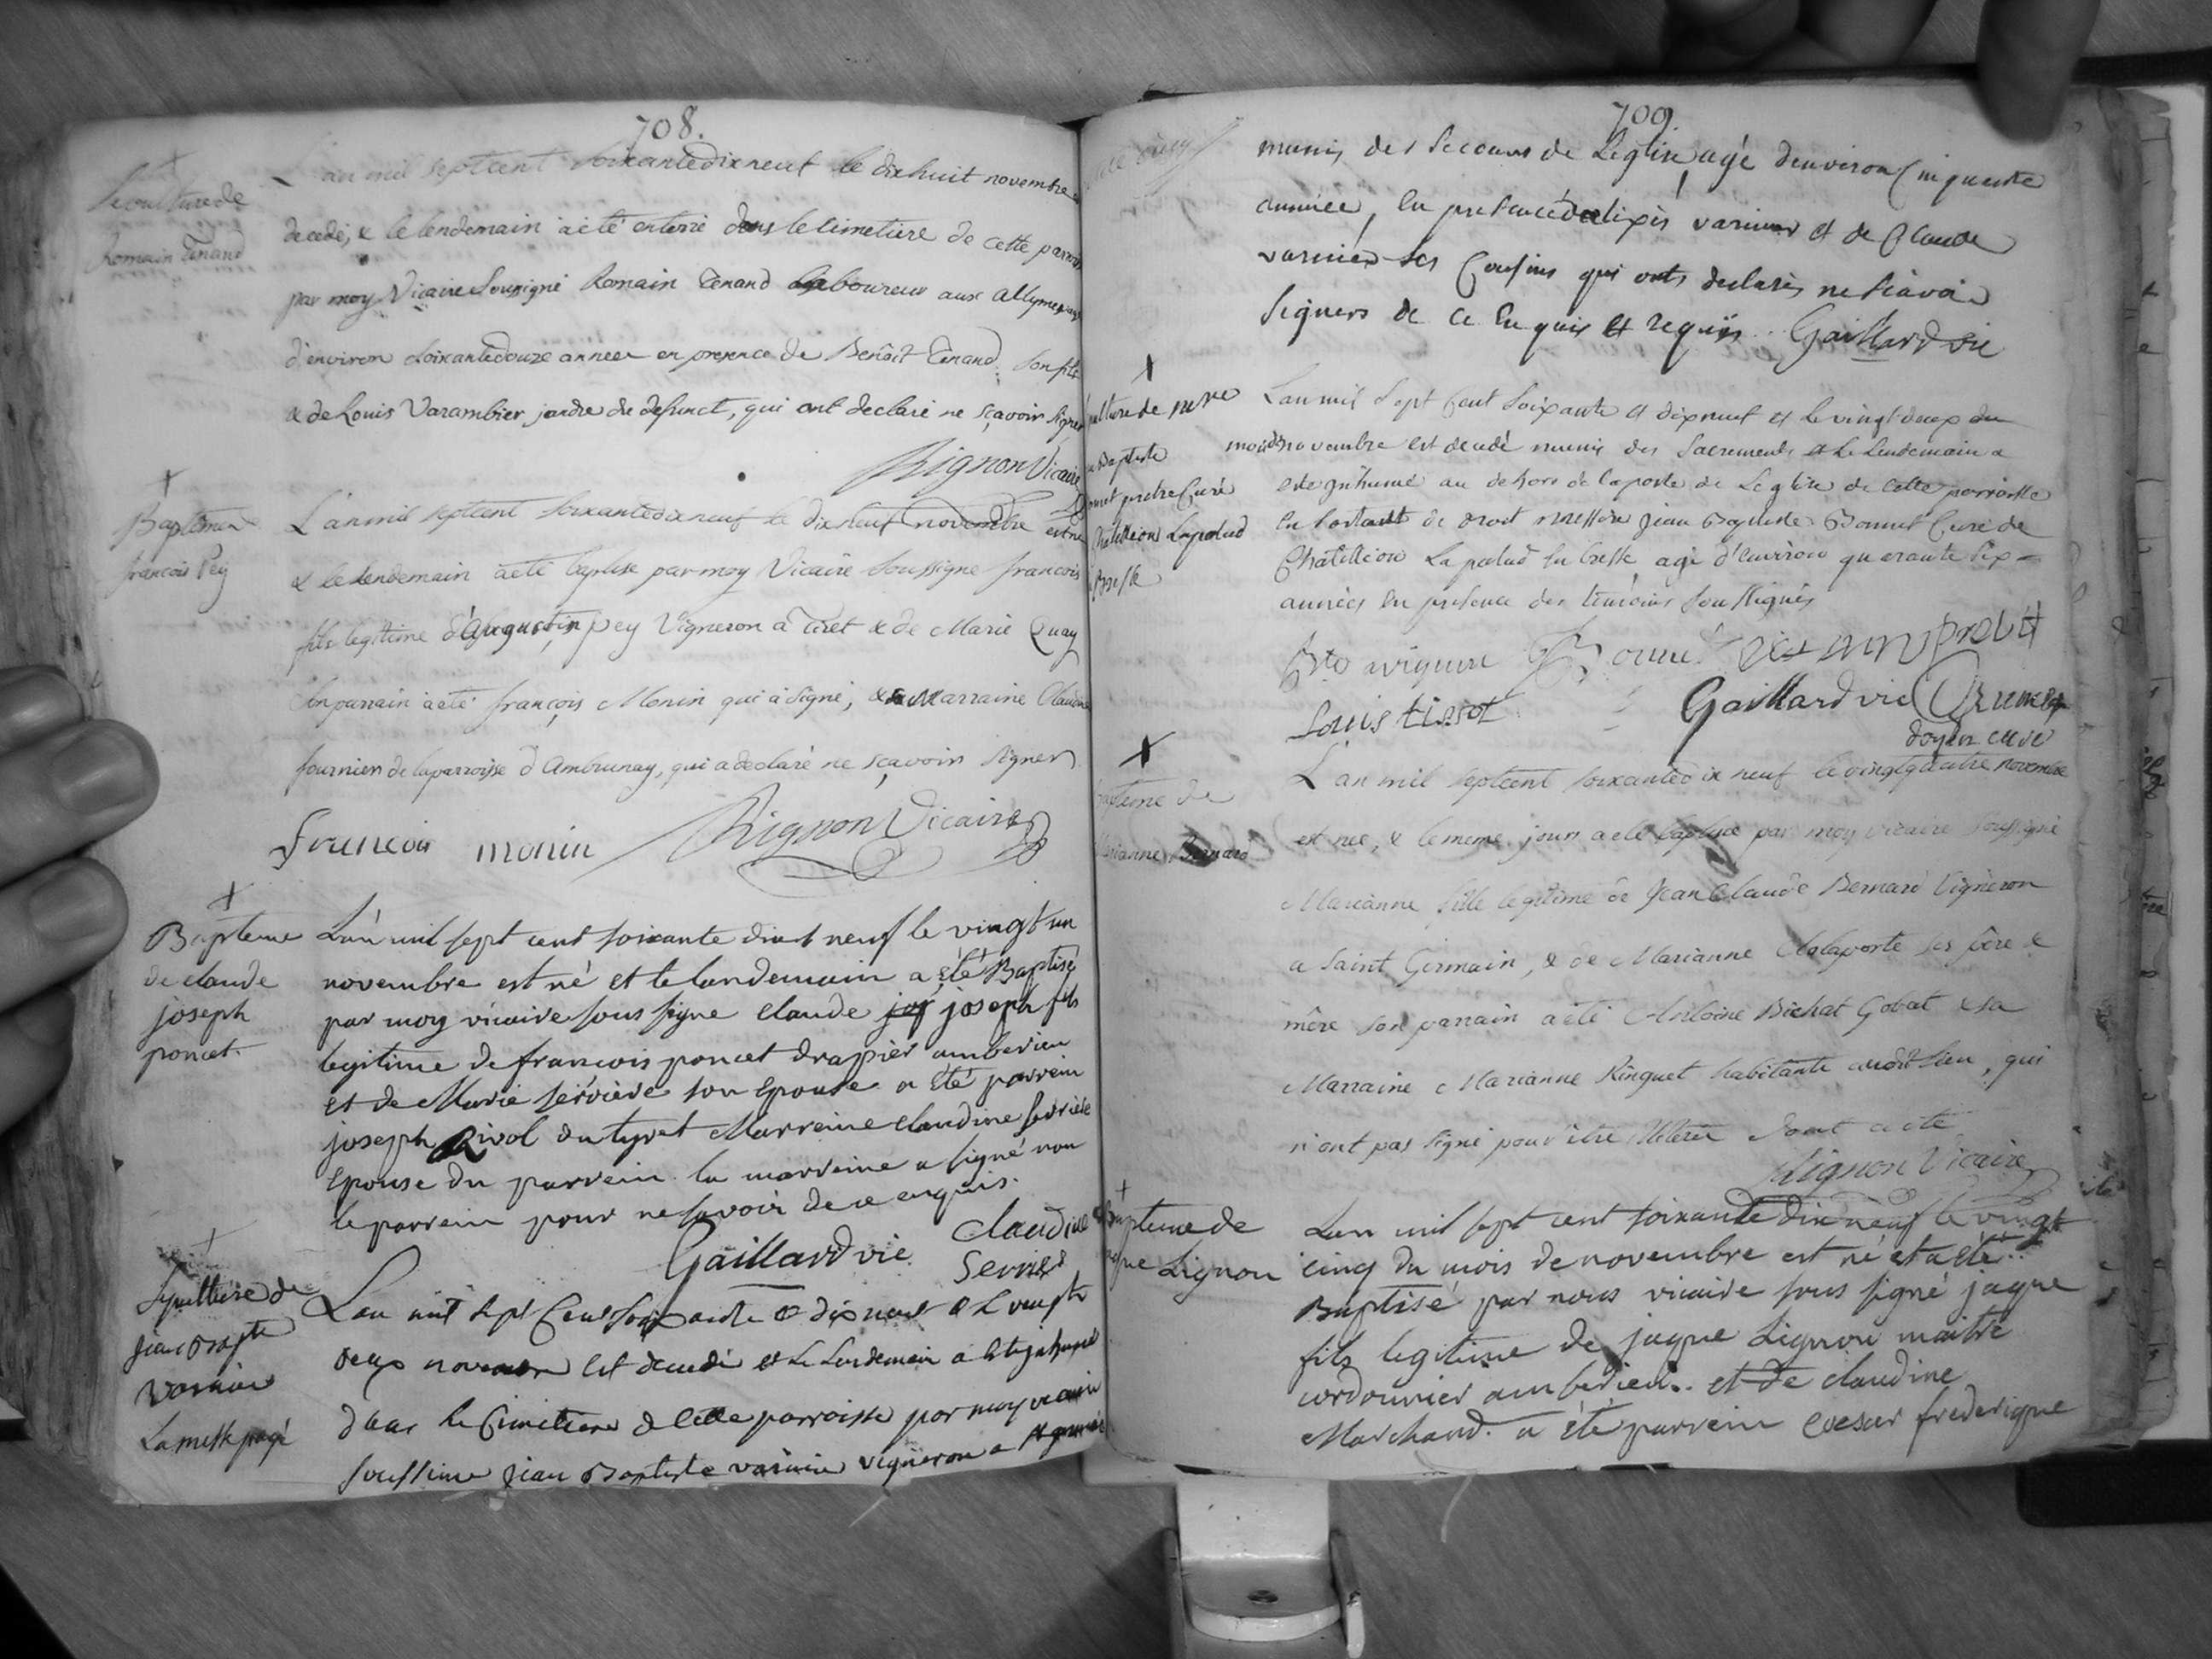 708.
Sepulture de
Romain Tenand
L'an mil septcent soixantedixneuf le dixhuit novembre
decedé, & le lendemain a eté enterré dans le cimetiere de cette parroisse
par moy Vicaire Soussigné Romain Tenand laboureur aux allymes
d'environ soixantedouze années en presence de Benoît Tenand son fils
& de Louis Varambier jandre du defunct, qui ont declaré ne sçavoir signer
Rignon Vicaire
Bapteme
françois Pey
L'an mil septcent soixantedixneuf le dixneuf novembre est né
& le lendemain a eté baptisé par moy Vicaire Soussigné françois
fils legitime d'augustin pey Vigneron a Tiret & de Marie Quay
son parrain a eté françois Monin qui a signé, & sa Marraine Claudine
fournier de la parroisse d'Ambrunay, qui a declaré ne sçavoir signer
francois monin Rignon Vicaire
Bapteme
de claude
joseph
poncet.
L'an mil sept cent soixante dix et neuf le vingt un
novembre est né et le landemain a été Baptisé
par moy vicaire sous signe claude jos joseph fils
legitime de francois poncet drapier amberieu
et de Marie serviere son epouse a été parrein
joseph Rivol du tyret Marreine claudine serriere
epouse du parrein. la marreine a signé non
le parrein pour ne savoir de ce enquis.
Gaillard vic claudine
Serrier
Sepulture de
jean Bapte
varinier
La messe payé
L'an mil sept Cent soixante et dix neuf et le vingt
deux novembre est decedé et le lendemain a eté jnhumé
dans le Cimetiere de Cette parroisse par moy vicaire
soussigné jean Baptiste varinier vigneron a
709
munis des secours de L'eglise, agé d'environ Cinquante
années, en presence d'alexis varinier et de Claude
varinier ses Cousins qui onts declarés ne sçavoir
signers de Ce Enquis et requis. Gaillard vic
Sepulture de mre
jean Baptiste
Bonnet pretre Curé
Chatillion Lapalud
en Bresse
L'an mil sept Cent soixante et dixneuf et le vingt deux du
mois de novembre est decedé munis des sacrements et le lendemain a
eté jnhumé au dehors de la porte de L'eglise de Cette parroisse
en sortant de droit messire jean Baptiste Bonnet Curé de
Chatillion La palud en bresse agé d'environ quarante six
années en presence des temoins soussignés
Louis tissot Gaillard vic
doyen curé
Bapteme de
Marianne Bernard
L'an mil septcent soixantedix neuf le vingtquatre novembre
est née, & le meme jour a eté baptisée par moy Vicaire soussigné
Marianne fille legitime de Jean Claude Bernard Vigneron
a Saint Germain, & de Marianne Delaporte ses père &
mère son parrain a eté Antoine Bichat Gobat & sa
Marraine Marianne Ringuet habitante audit lieu, qui
n'ont pas signé pour être illeteré dont acte
Rignon Vicaire
Bapteme de
jaque Lignon
L'an mil sept cent soixante dix neuf le vingt
cinq du mois de novembre est né et a été
Baptisé par nous vicaire sous signé jaque
fils legitime de jaque Lignon maitre
cordonnier amberieu.. et de claudine
Marchand. a été parrein cesar frederique